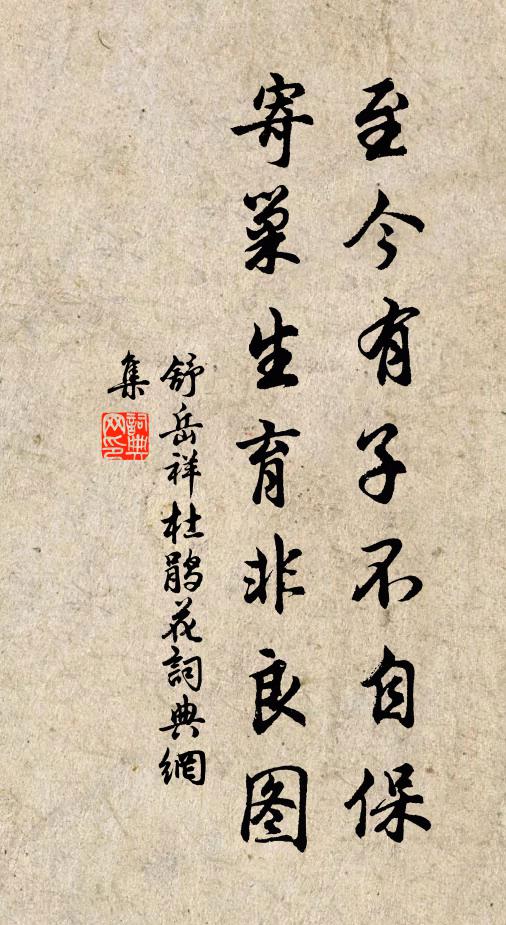 至今有子不自保
寄巢生育非良图
舒岳祥杜鹃花詞典網
集
詞典
网印